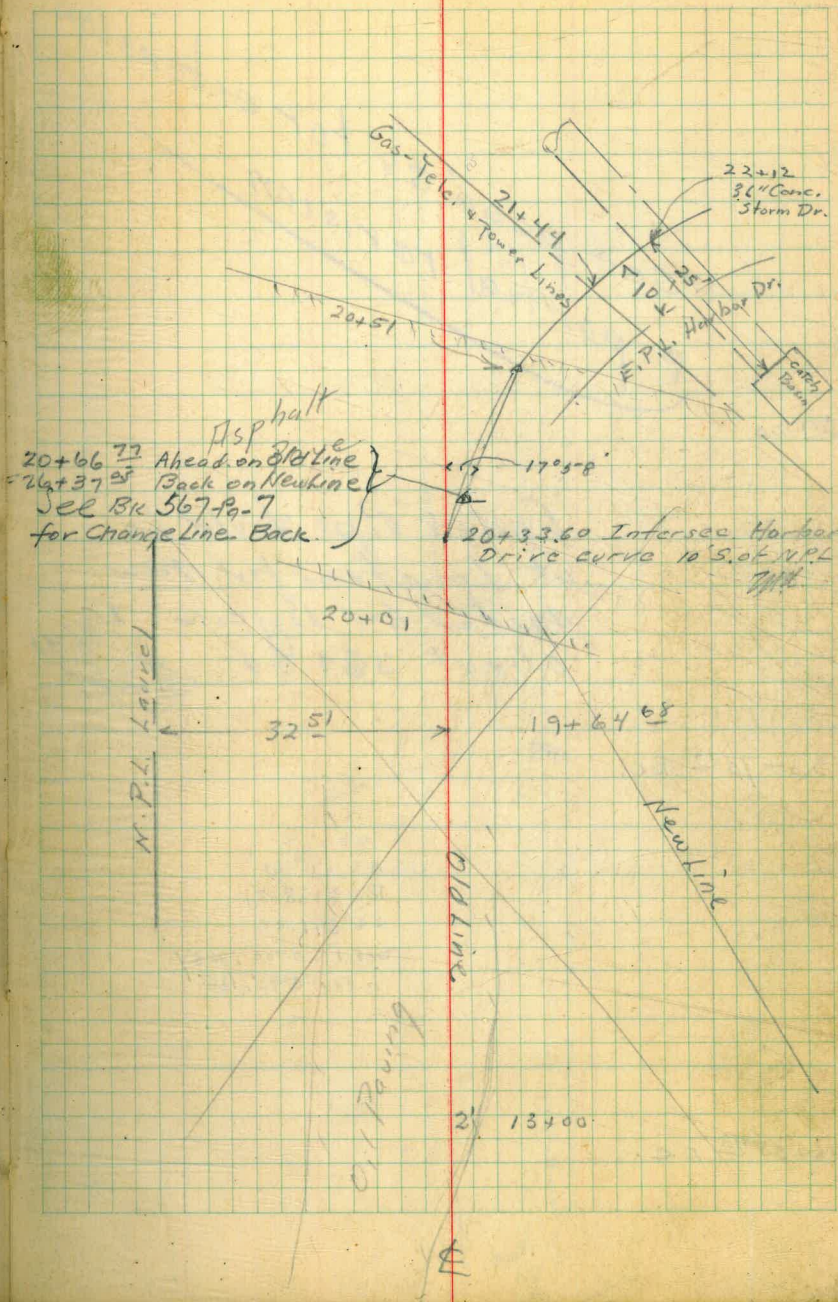 Gas-Tele. & Power Lines
21+44
22+12
36" Conc.
Storm Dr.
25'
10'
Harbor Dr.
E.P.L.
Catch
Basin
20+51
Asphalt
20+66 77 Ahead on Old Line
=26+37 Back on New Line
See Bk 567-Pg-7
for Change Line Back.
17°58'
20+33.60 Intersec. Harbor
Drive curve 10' S. of N.P.L.
20+01
N.P.L. Laurel
32 51
19+64 68
New Line
Old Line
Oil Paving
2'
13+00
℄